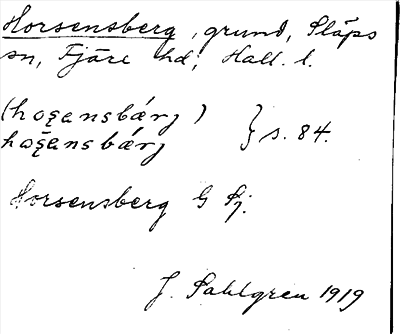 Horsensberg, grund, Släps
sn, Fjäre hd, Hall. l.
(hoʂensbærj)
hɷʂensbærj } s. 84.
Horsensberg G Sj.
J. Sahlgren 1919